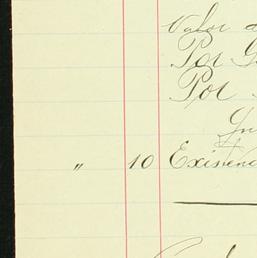 Valor d
Por G
Por
In
" 10 Existenc